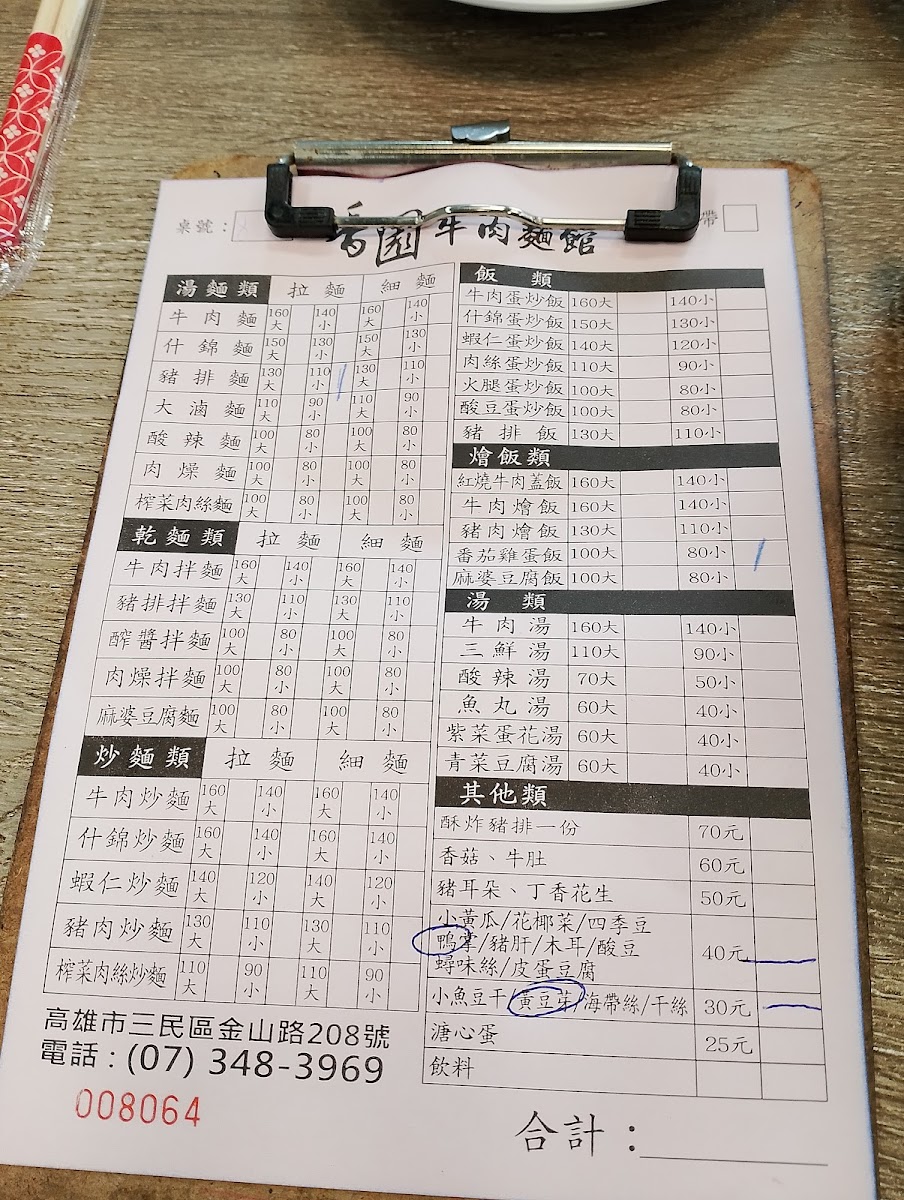 桌號：
香園牛肉麵館
帶
湯麵類 拉麵 細麵
牛肉麵 160大 140小 160大 140小
什錦麵 150大 130小 150大 130小
豬排麵 130大 110小 130大 110小
大滷麵 110大 90小 110大 90小
酸辣麵 100大 80小 100大 80小
肉燥麵 100大 80小 100大 80小
榨菜肉絲麵 100大 80小 100大 80小
乾麵類 拉麵 細麵
牛肉拌麵 160大 140小 160大 140小
豬排拌麵 130大 110小 130大 110小
醡醬拌麵 100大 80小 100大 80小
肉燥拌麵 100大 80小 100大 80小
麻婆豆腐麵 100大 80小 100大 80小
炒麵類 拉麵 細麵
牛肉炒麵 160大 140小 160大 140小
什錦炒麵 160大 140小 160大 140小
蝦仁炒麵 140大 120小 140大 120小
豬肉炒麵 130大 110小 130大 110小
榨菜肉絲炒麵 110大 90小 110大 90小
高雄市三民區金山路208號
電話：(07) 348-3969
008064
飯類
牛肉蛋炒飯 160大 140小
什錦蛋炒飯 150大 130小
蝦仁蛋炒飯 140大 120小
肉絲蛋炒飯 110大 90小
火腿蛋炒飯 100大 80小
酸豆蛋炒飯 100大 80小
豬排飯 130大 110小
燴飯類
紅燒牛肉蓋飯 160大 140小
牛肉燴飯 160大 140小
豬肉燴飯 130大 110小
番茄雞蛋飯 100大 80小
麻婆豆腐飯 100大 80小
湯類
牛肉湯 160大 140小
三鮮湯 110大 90小
酸辣湯 70大 50小
魚丸湯 60大 40小
紫菜蛋花湯 60大 40小
青菜豆腐湯 60大 40小
其他類
酥炸豬排一份 70元
香菇、牛肚 60元
豬耳朵、丁香花生 50元
小黃瓜/花椰菜/四季豆
鴨掌/豬肝/木耳/酸豆 40元
蟳味絲/皮蛋豆腐
小魚豆干/黃豆芽/海帶絲/干絲 30元
溏心蛋 25元
飲料
合計：